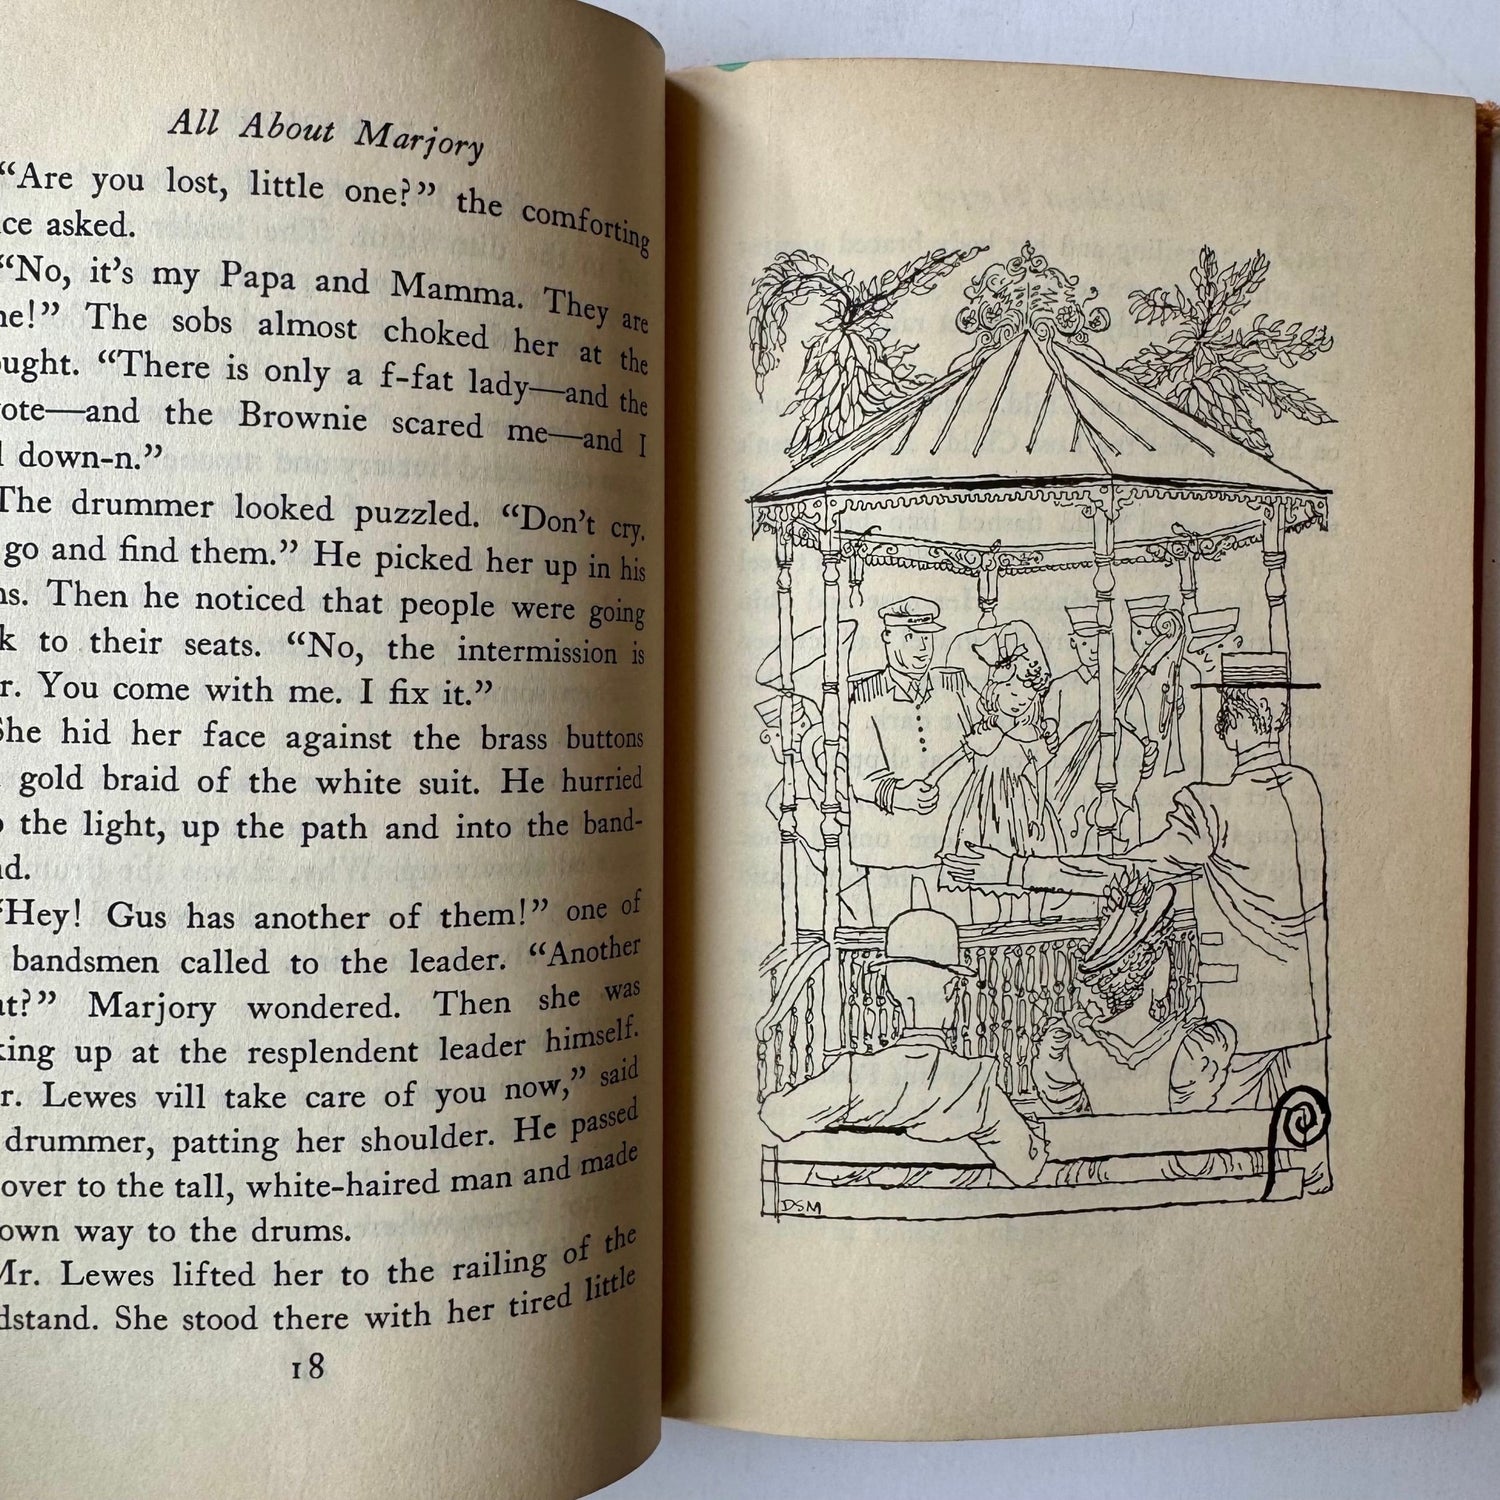 All About Marjory
“Are you lost, little one?” the comforting
ce asked.
“No, it's my Papa and Mamma. They are
ne!” The sobs almost choked her at the
ought. “There is only a f-fat lady—and the
ote—and the Brownie scared me—and I
l down-n.”
The drummer looked puzzled. “Don't cry.
go and find them.” He picked her up in his
ns. Then he noticed that people were going
k to their seats. “No, the intermission is
r. You come with me. I fix it.”
She hid her face against the brass buttons
gold braid of the white suit. He hurried
o the light, up the path and into the band-
nd.
“Hey! Gus has another of them!” one of
bandsmen called to the leader. “Another
at?” Marjory wondered. Then she was
king up at the resplendent leader himself.
r. Lewes vill take care of you now,” said
drummer, patting her shoulder. He passed
over to the tall, white-haired man and made
own way to the drums.
Mr. Lewes lifted her to the railing of the
dstand. She stood there with her tired little
18
DSM